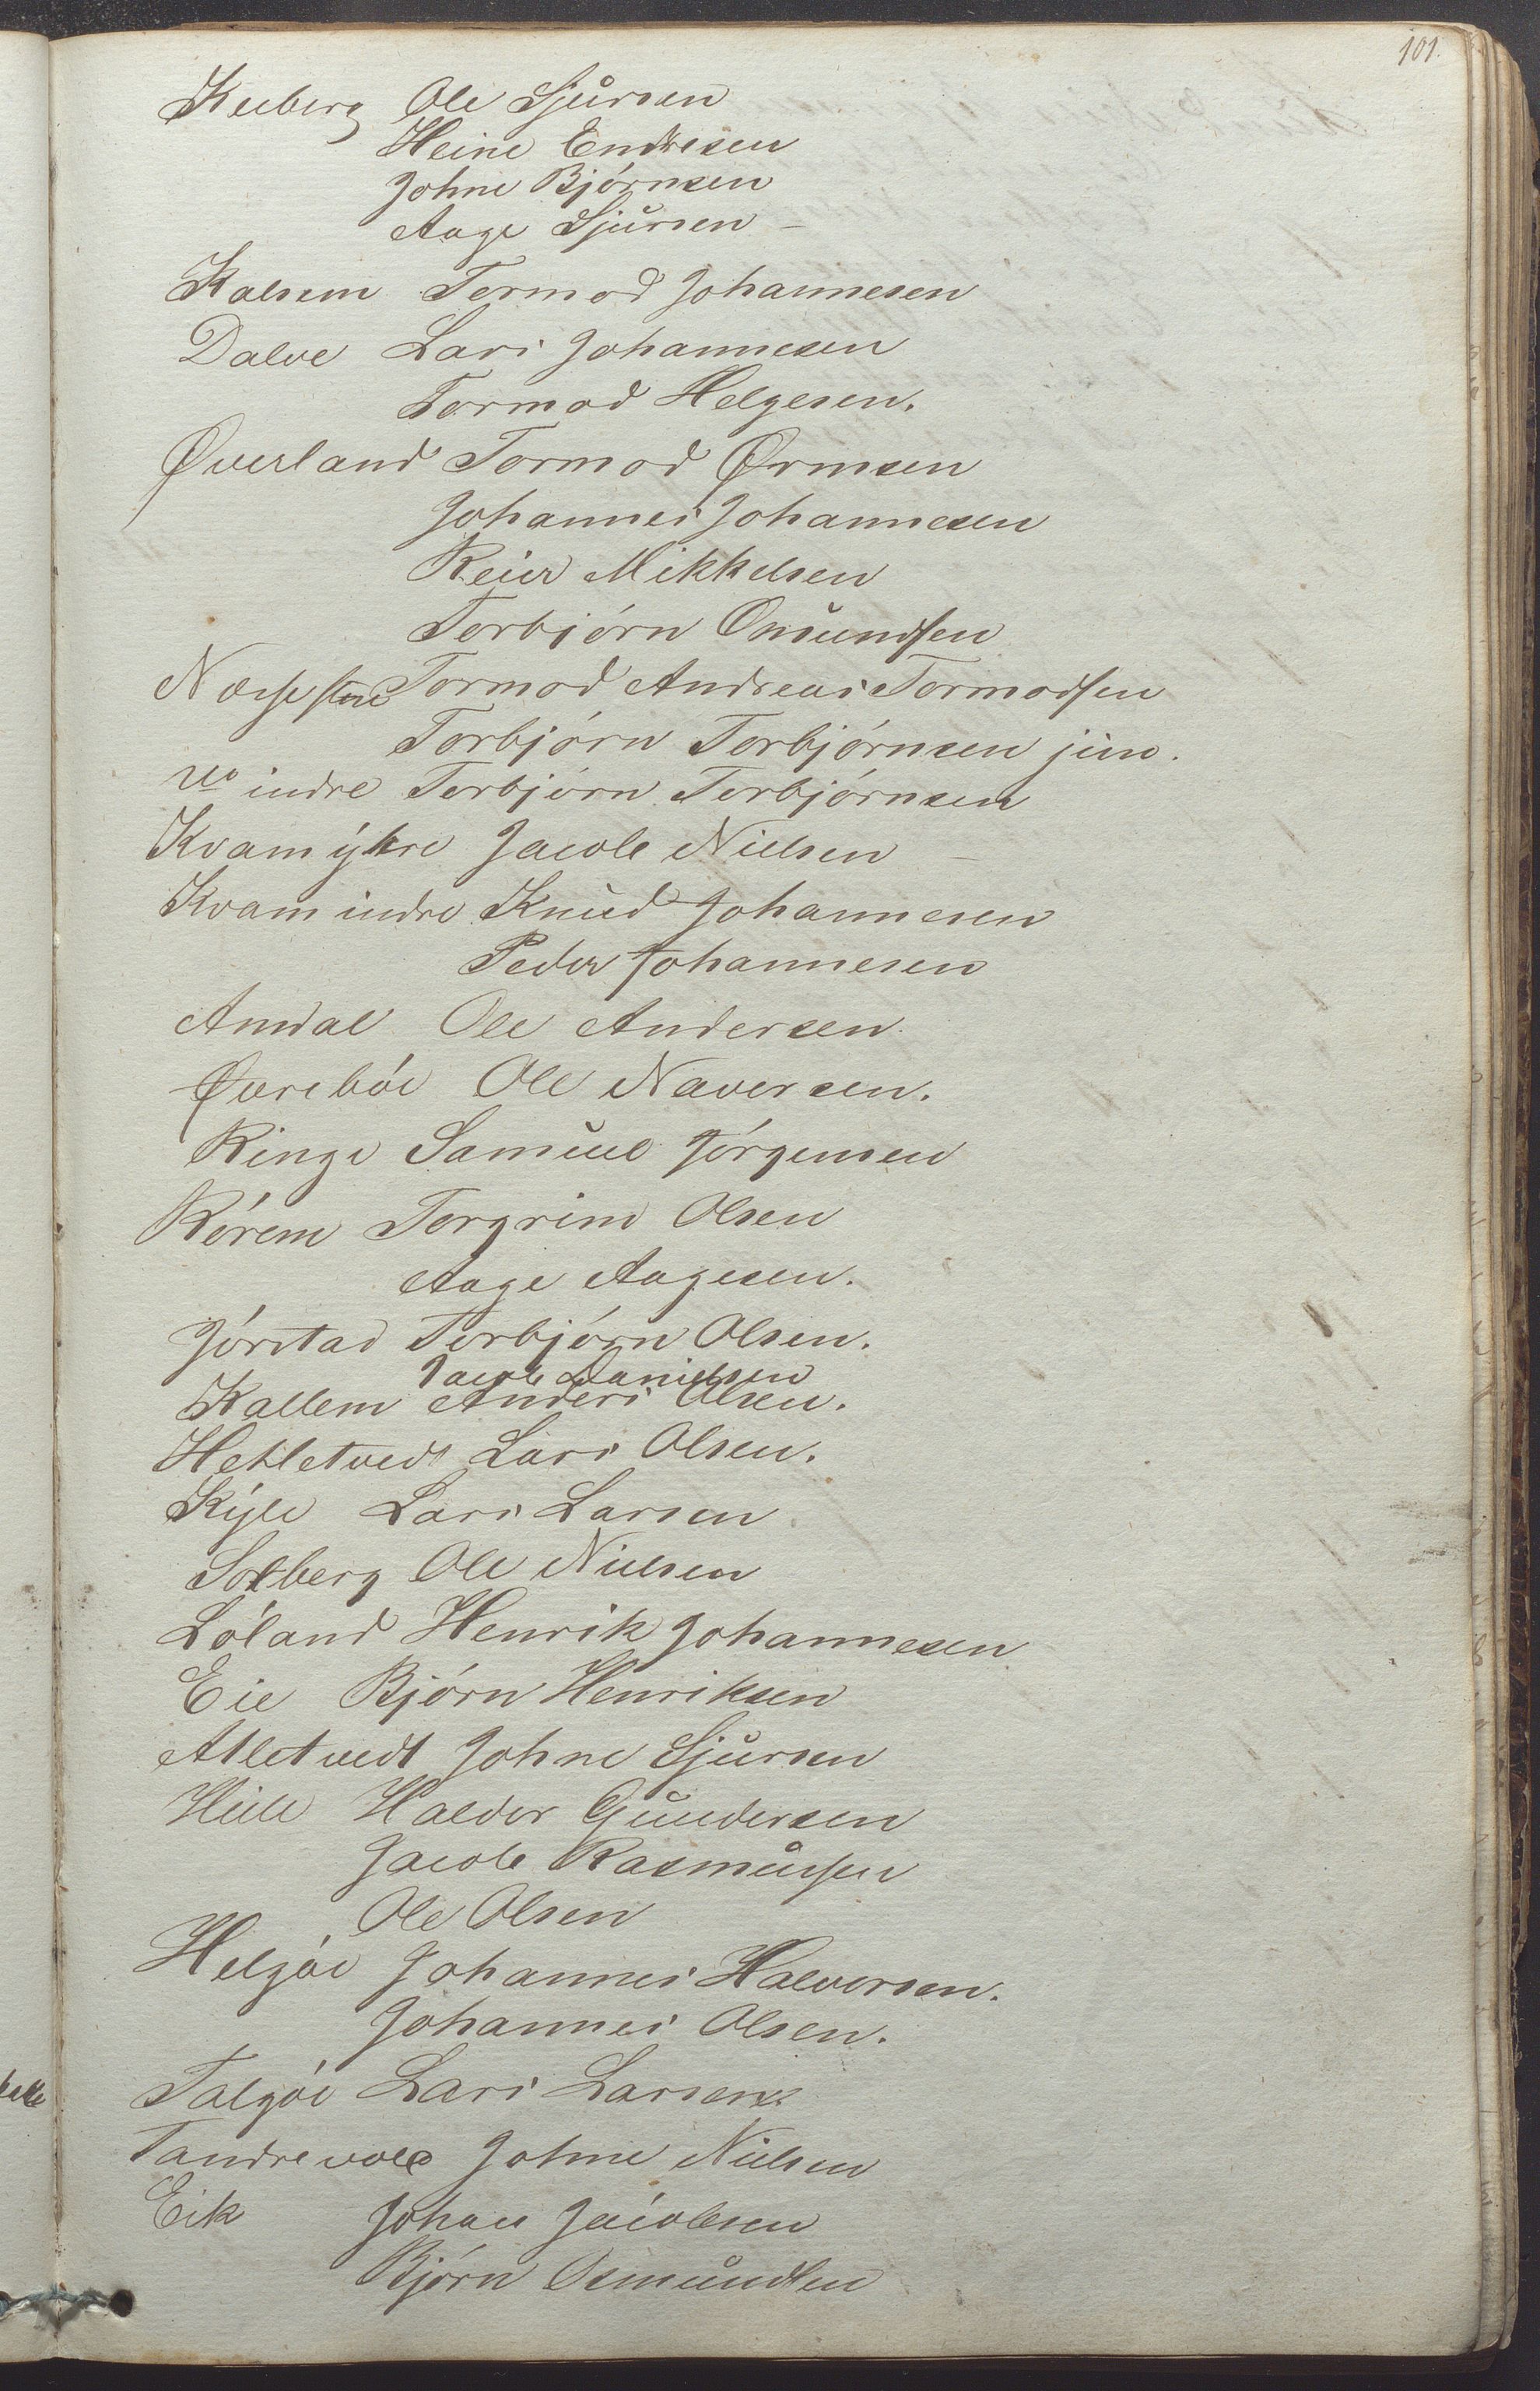 101.
Ole Sjursen
Heine Endresen
Johne Bjørnsen
Aage Sjursen –
Kalsem Tormod Johannesen
Dalve Lars Johannesen
Tormod Helgesen.
Øverland Tormod Ormsen
Johannes Johannesen
Reier Mikkelsen
Torbjørn Omundsen
Tormod Andreas Tormodsen
Torbjørn Torbjørnsen jun.
do indre Torbjørn Torbjørnsen
Kvam ytre Jacob Nielsen –
Kvam indre Knud Johannesen
Peder Johannesen
Amdal Ole Andersen
Øvrebøe Ole Naversen.
Ringe Samuel Jørgensen
Rørem Torgrim Olsen
Aage Aagesen.
Jørstad Torbjørn Olsen.
Jacob Danielsen
Kallem Anders Olsen.
Hetletvedt Lars Olsen.
Kyle Lars Larsen
Solberg Ole Nielsen
Løland Henrik Johannesen
Eie Bjørn Henriksen
Atletvedt Johne Sjursen
Helle Haldor Gundersen
Jacob Rasmussen
Ole Olsen
Helgøe Johannes Halvorsen.
Johannes Olsen.
Talgøe Lars Larsen
Tandrevold Johne Nielsen
Eik Johan Jacobsen
Bjørn Osmundsen